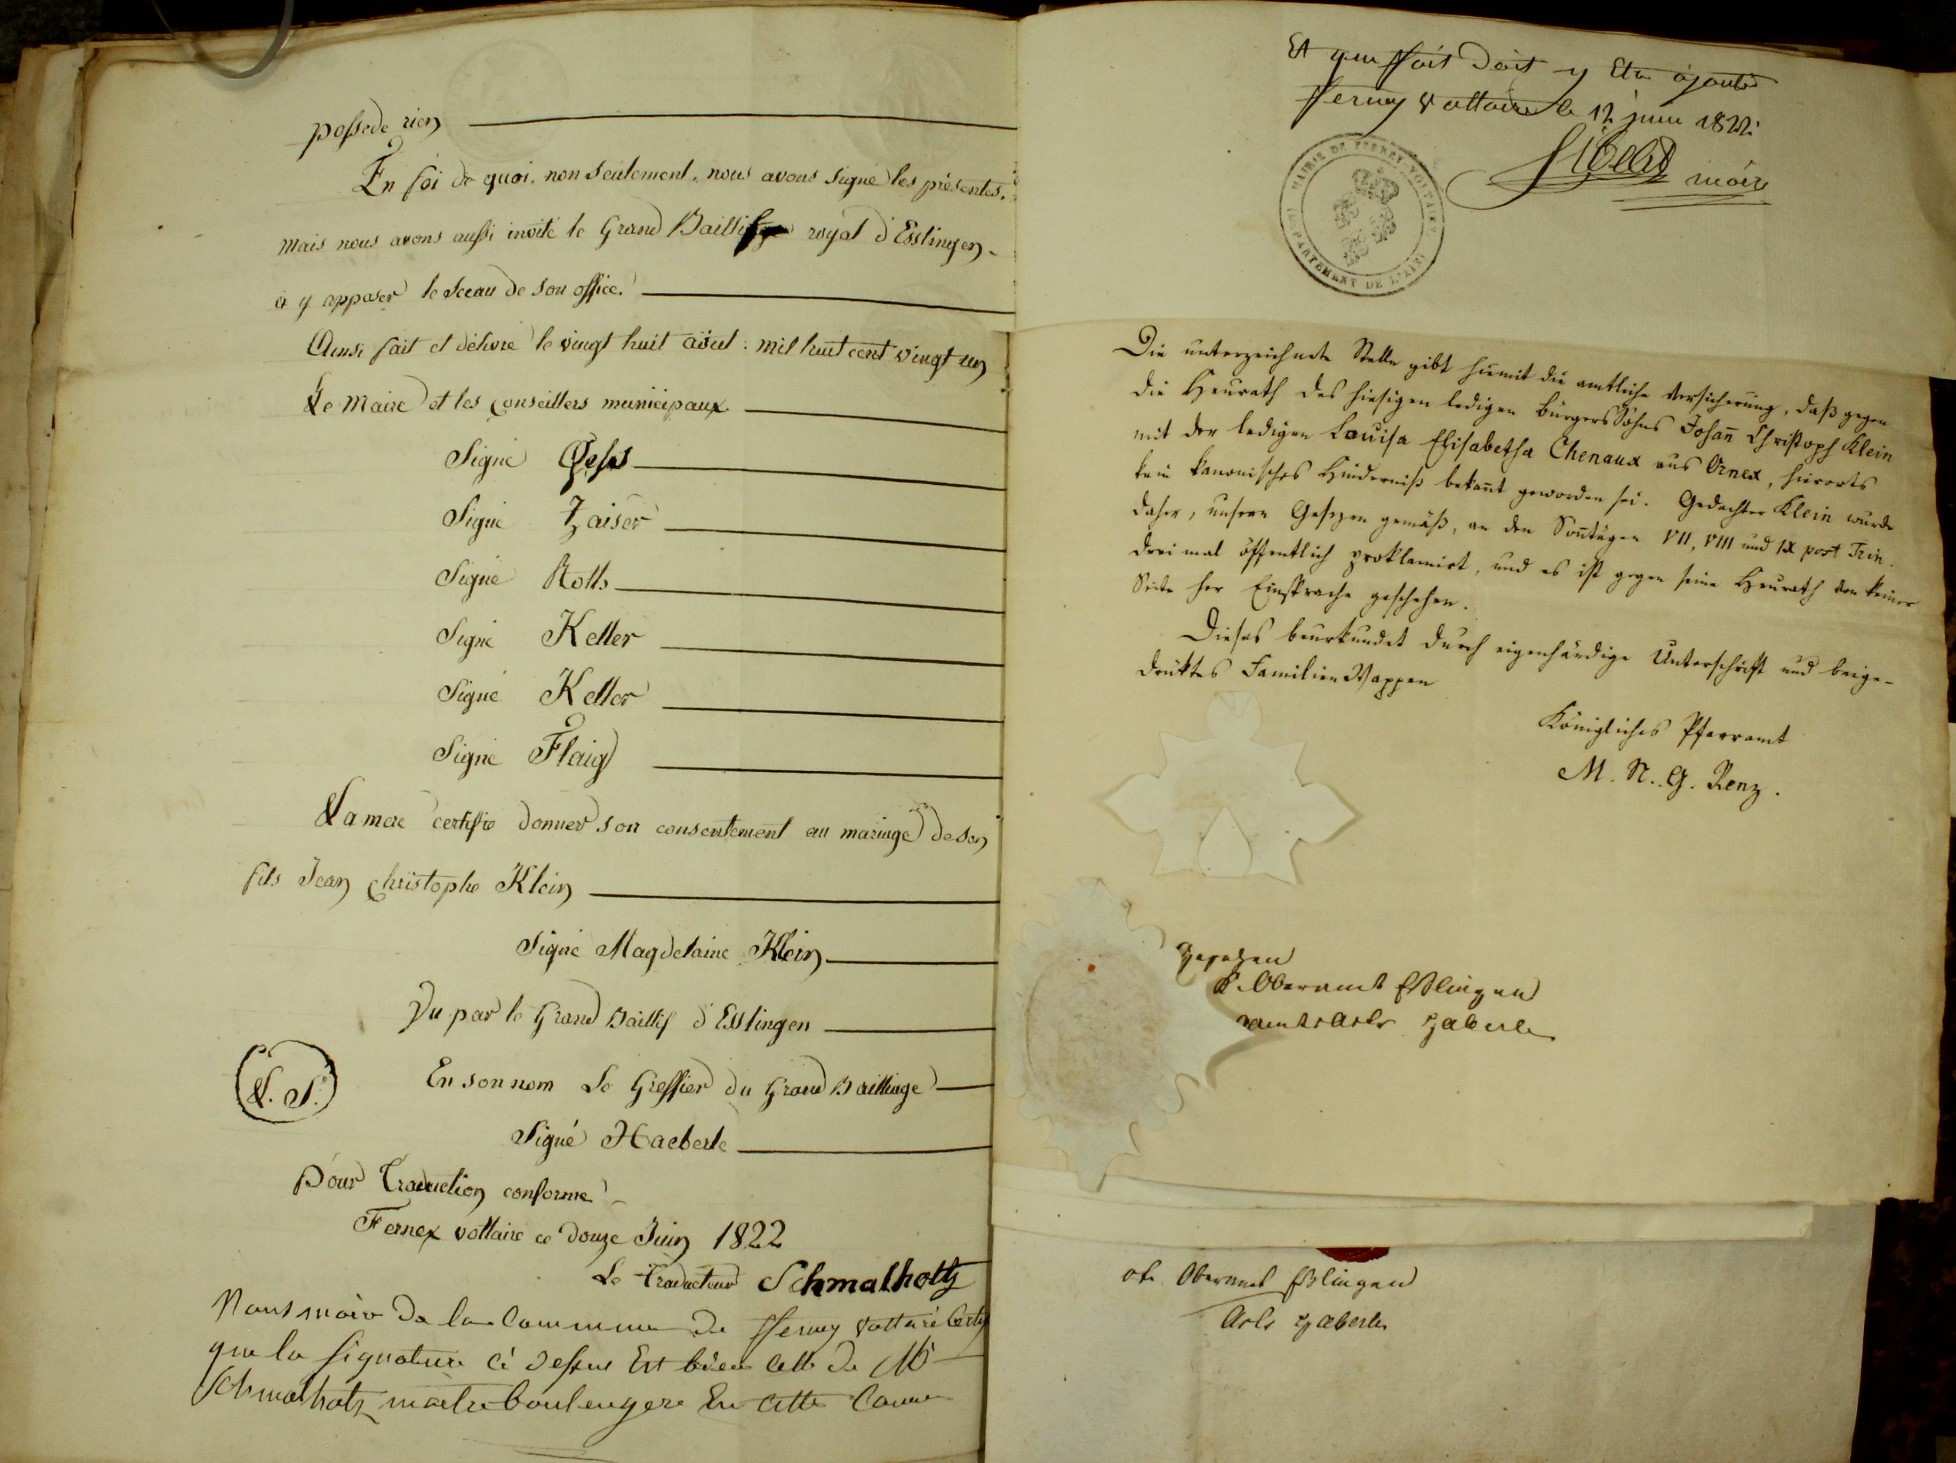 possede rien
En foi de quoi, non seulement, nous avons signé les présentes,
mais nous avons aussi invité le Grand Bailli royal d'Esslingen
à y apposer le Sceau de son office.
Ainsi fait et délivré le vingt huit aôut mil huit cent vingt un
Le Maire et les Conseillers municipaux
Signé
Signé Zaiser
Signé Roth
Signé Keller
Signé Keller
Signé Flaig
La mere certifie donner son consentement au mariage de son
fils Jean Christophe Klein
Signé Magdelaine Klein
Vu par le Grand Baillif d'Esslingen
L. S.
En son nom Le Greffier du Grand Bailliage
Signé Haeberle
Pour Traduction conforme
Fernex voltaire ce douze Juin 1822
Le Traducteur Schmalholtz
Nous maire De la Commune De fferney Voltaire Certif
que la signature Ci Dessus Est bien Celle De Mr
Schmalholtz maitre boulenger En Cette Comm
Et que ffoit Doit y Etre ajouté
fferney Voltaire le 12 juin 1822
maire
MAIRIE DE FERNEY-VOLTAIRE
DÉPARTEMENT DE L'AIN
Die unterzeichnete Stelle gibt hiemit die amtliche Versicherung, daß gegen
die Heurath des hiesigen ledigen Bürgers Sohns Johan̄ Christoph Klein
mit der ledigen Louisa Elisabetha Chenaux aus Ornex, hierorts
kein kanonisches Hinderniß bekan̄t geworden sei. Gedachter Klein wurde
daher, unsern Gesezen gemäß, an den Son̄tägen VII, VIII und IX post Trin.
drei mal öffentlich proklamirt, und es ist gegen seine Heurath von keiner
Seite her Einsprache geschehen.
Dieses beurkundet durch eigenhändige Unterschrift und beige-
druktes Familien Wappen
Königliches Pfarramt
M. N. G. Renz.
Gesehen
K. Oberamt Eßlingen
Haberle
Oberamt Eßlingen
Haberle